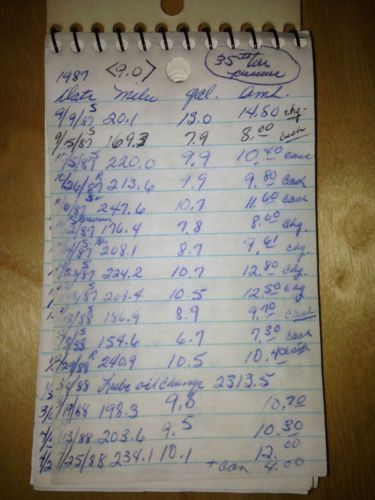 1987 <9.0> 35 lbs tire pressure
Date Miles gal. Amt.
9/9/87 S 20.1 13.0 14.50 chg.
9/15/87 S 169.3 7.9 8.00 cash
S 220.0 9.9 10.40 cash
/26/87 R 213.6 9.9 9.80 cash
/87 247.6 10.7 11.60 cash
/12/87 176.4 7.8 8.60 chg.
/87 208.1 8.7 9.61 chg.
/87 224.2 10.7 12.80 chg.
/87 10.5 12.50 chg
/88 186.9 8.9 9.70 cash
/88 S 154.6 6.7 7.30 cash
/88 R 240.9 10.5 10.40 cash
/88 Lube oil change 2313.5
3/ /88 198.3 9.8 10.70
/13/88 203.6 9.5 10.30
/25/88 234.1 10.1 12.00
+ can 4.00